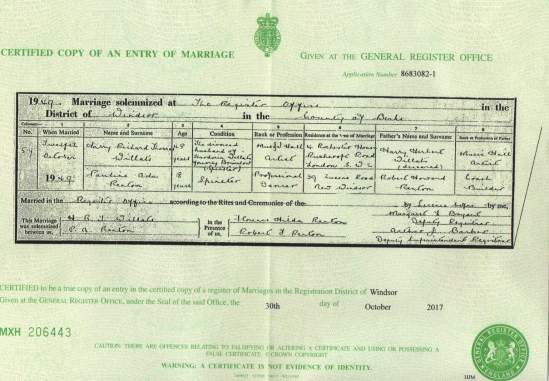 CERTIFIED COPY OF AN ENTRY OF MARRIAGE
GIVEN AT THE GENERAL REGISTER OFFICE
Application Number 8683082-1
1949. Marriage solemnized at The Register Office in the
District of Windsor in the County of Berks
No. When Married Name and Surname Age Condition Rank or Profession Residence at the time of Marriage Father's Name and Surname Rank or Profession of Father
October 1949
Harry Richard Willats 48 years The divorced husband of Willats Music Hall Artist 4 House Road London S.W.2 Harry Herbert Willats (deceased) Music Hall Artist
Pauline Ada Paxton 18 years Spinster Professional Dancer 39 Road New Windsor Robert Howard Paxton Coach Builder
Married in the Register Office according to the Rites and Ceremonies of the by me,
This Marriage was solemnized between us,
H R Willats
P. A. Paxton
in the Presence of us,
Hilda Paxton
Robert Paxton
Margaret
Deputy Registrar
Arthur J. Barker
Deputy Superintendent Registrar
CERTIFIED to be a true copy of an entry in the certified copy of a register of Marriages in the Registration District of Windsor
Given at the GENERAL REGISTER OFFICE, under the Seal of the said Office, the 30th day of October 2017
MXH 206443
CAUTION: THERE ARE OFFENCES RELATING TO FALSIFYING OR ALTERING A CERTIFICATE AND USING OR POSSESSING A
FALSE CERTIFICATE. © CROWN COPYRIGHT
WARNING: A CERTIFICATE IS NOT EVIDENCE OF IDENTITY.
GENERAL REGISTER OFFICE
ENGLAND